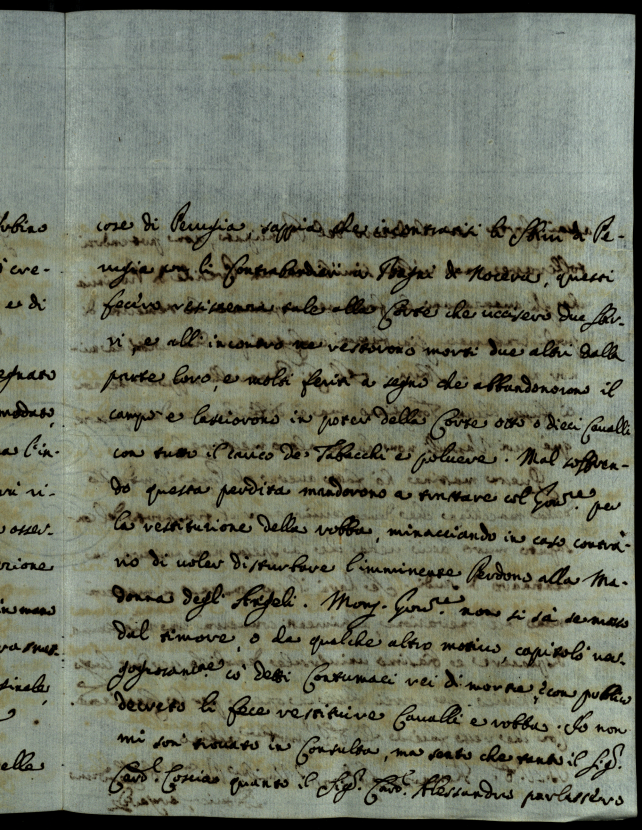 cose di Perugia, sappia che incontratisi li Sbirri di Pe-
rugia con li Contrabandieri a Bagni di Nocera, questi
fecero resistenza tale alla Corte che uccisero due Sbir-
ri, e all' incontro ne restorono morti due altri dalla
parte loro, e molti feriti a segno che abbandonorono il
campo e lasciorono in poter della Corte otto o dieci Cavalli
con tutto il carico de Tabacchi e polvere. Mal soffren-
do questa perdita mandorono a trattare col Gov.re per
la restituzione della robba, minacciando in caso contra-
rio di voler disturbare l'imminente Perdono alla Ma-
donna degli Angeli. Mons. Gov.re non si sà se mosso
dal timore, o da qualche altro motivo capitolò ver-
gognosam.te co' detti Contumaci rei di morte, e con publico
decreto li fece restituire Cavalli e robba. Io non
mi son trovato in Consulta, ma sento che tanto il Sig.r
Card.l Coscia quanto il Sig.r Card.l Alessandro parlassero
urbino
cre-
e di
egnato
modato,
a l'in-
ri-
osser-
zione
in mano
ella